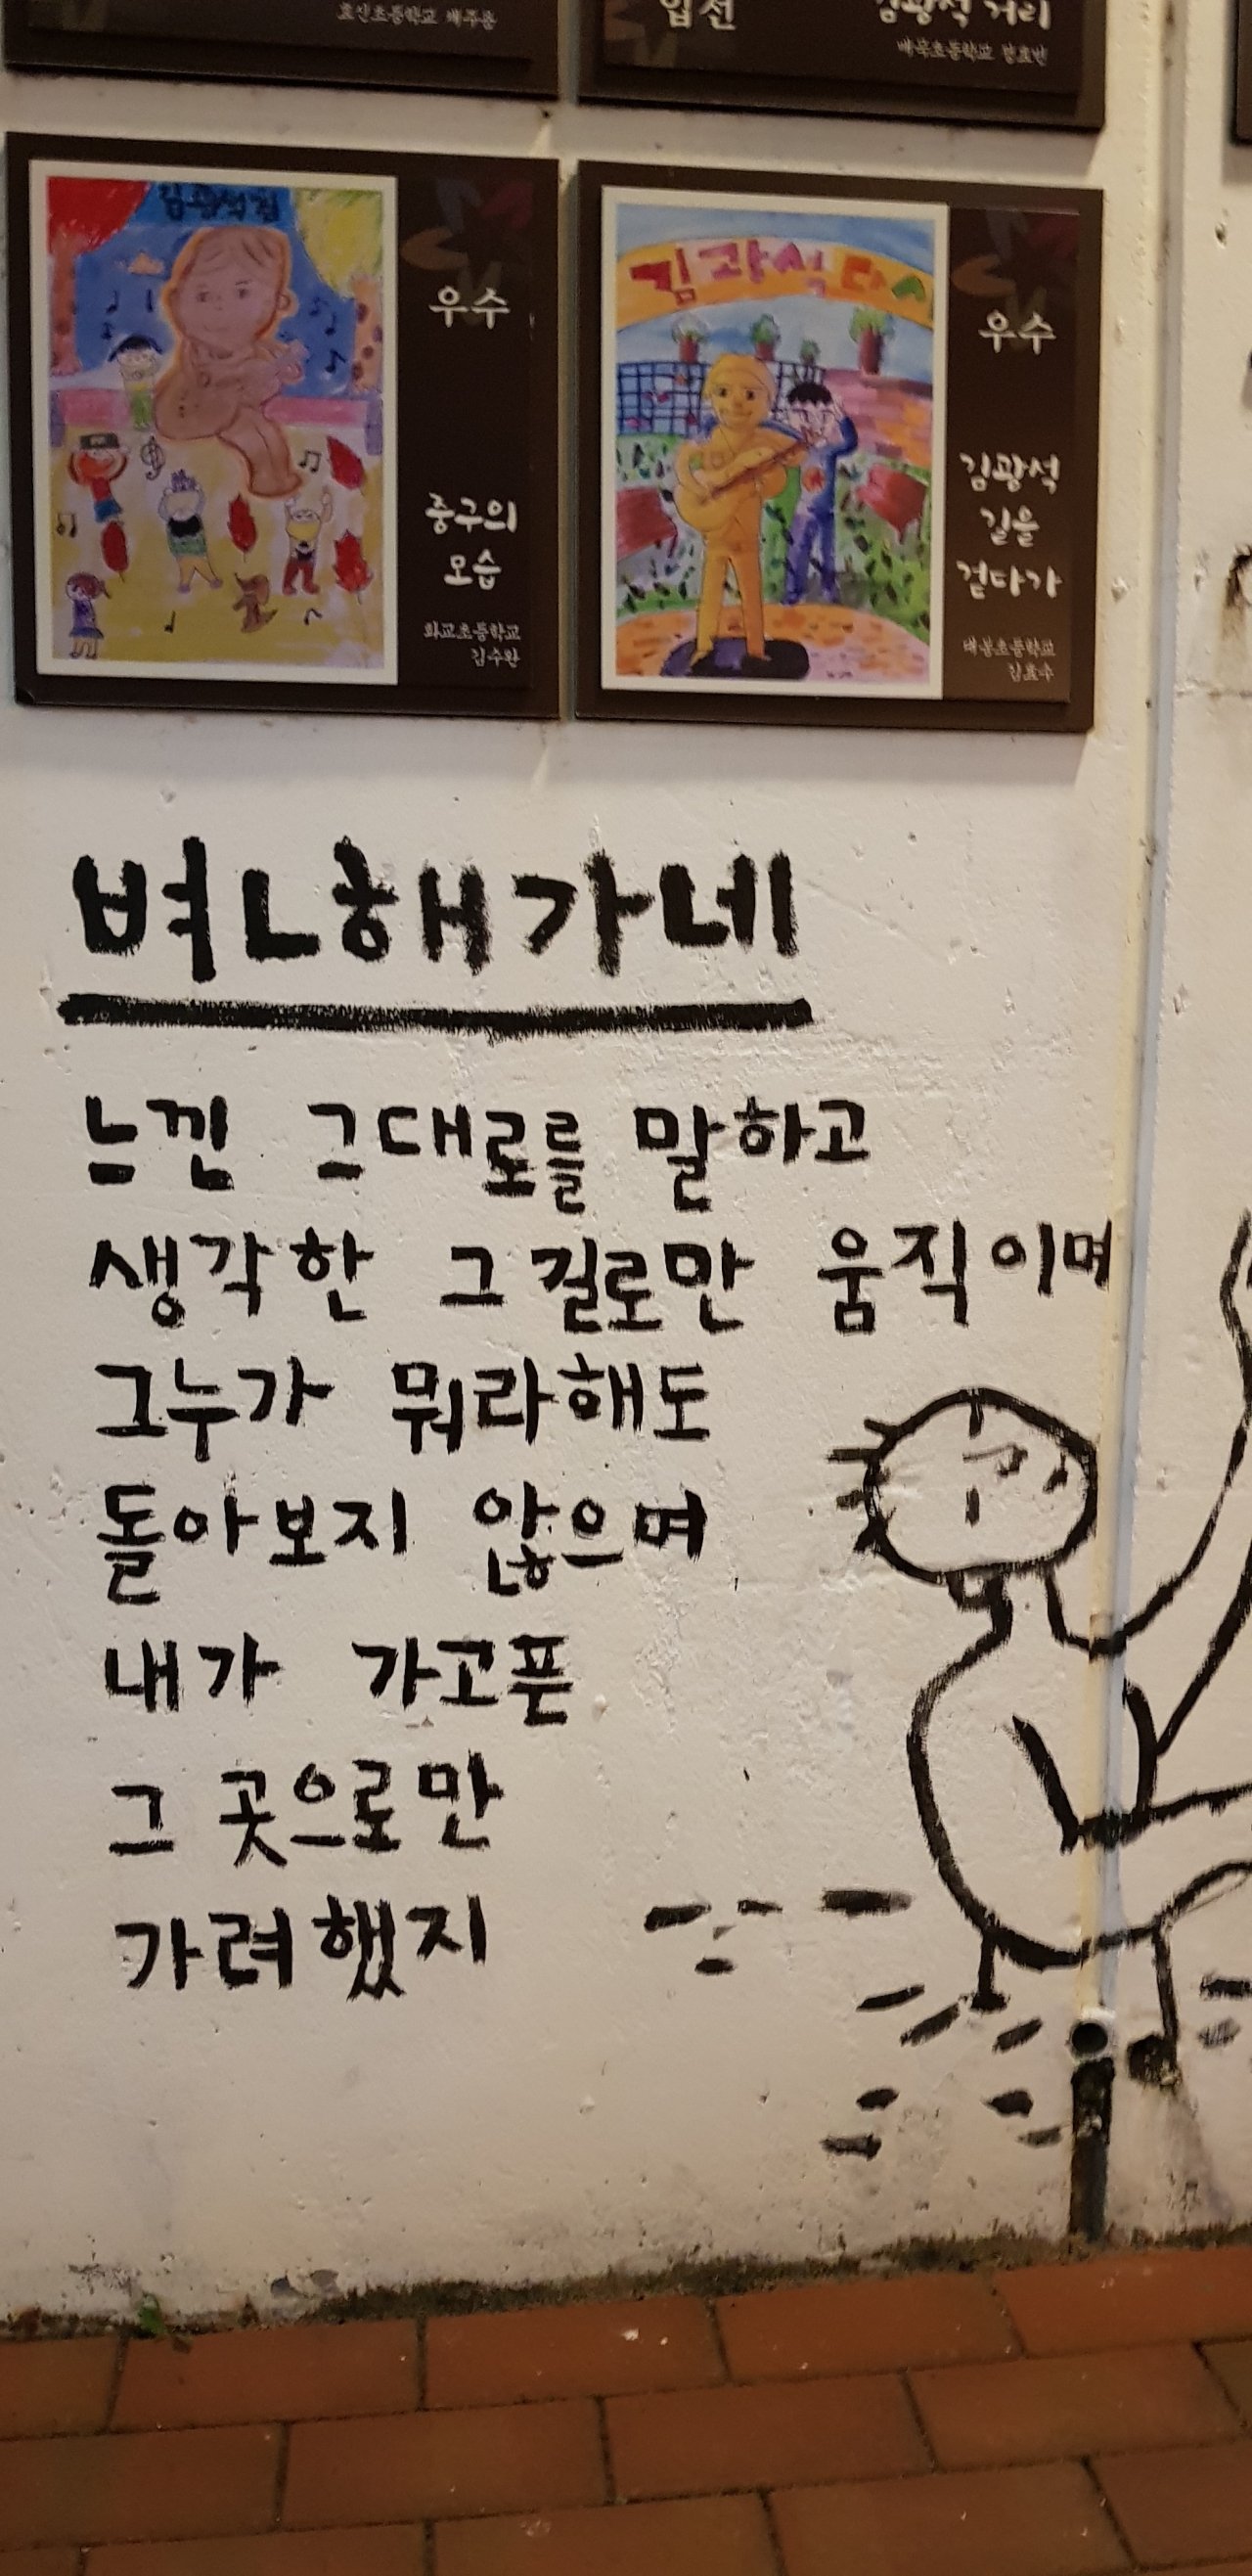 입선
김광석 거리
김광석길
우수
중구의
모습
화교초등학교
김수환
김광석 다시
우수
김광석
길을
걷다가
대봉초등학교
김효수
변해가네
느낀 그대로를 말하고
생각한 그 길로만 움직이며
그누가 뭐라해도
돌아보지 않으며
내가 가고픈
그 곳으로만
가려했지